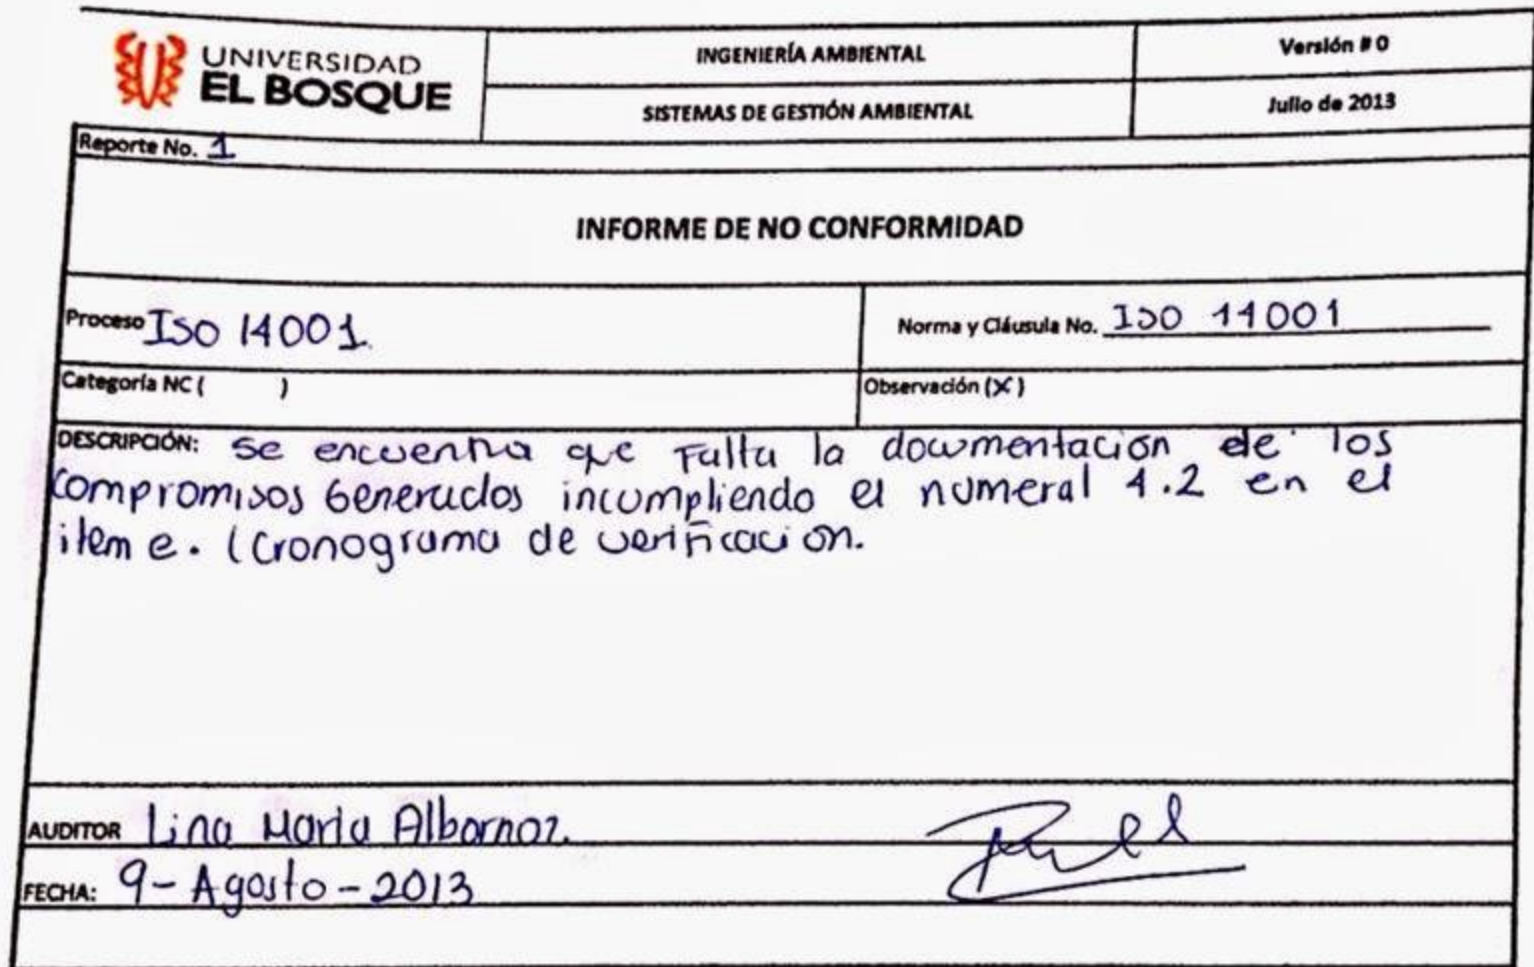 UNIVERSIDAD
EL BOSQUE
INGENIERÍA AMBIENTAL
Versión # 0
SISTEMAS DE GESTIÓN AMBIENTAL
Julio de 2013
Reporte No. 1
INFORME DE NO CONFORMIDAD
Proceso ISO 14001.
Norma y Cláusula No. ISO 14001
Categoría NC ( )
Observación (X)
DESCRIPCIÓN: se encuentra que Falta la documentación de los
compromisos Generados incumpliendo el numeral 4.2 en el
item e. (Cronograma de verificacion.
AUDITOR Lina Maria Albornoz.
FECHA: 9-Agosto-2013